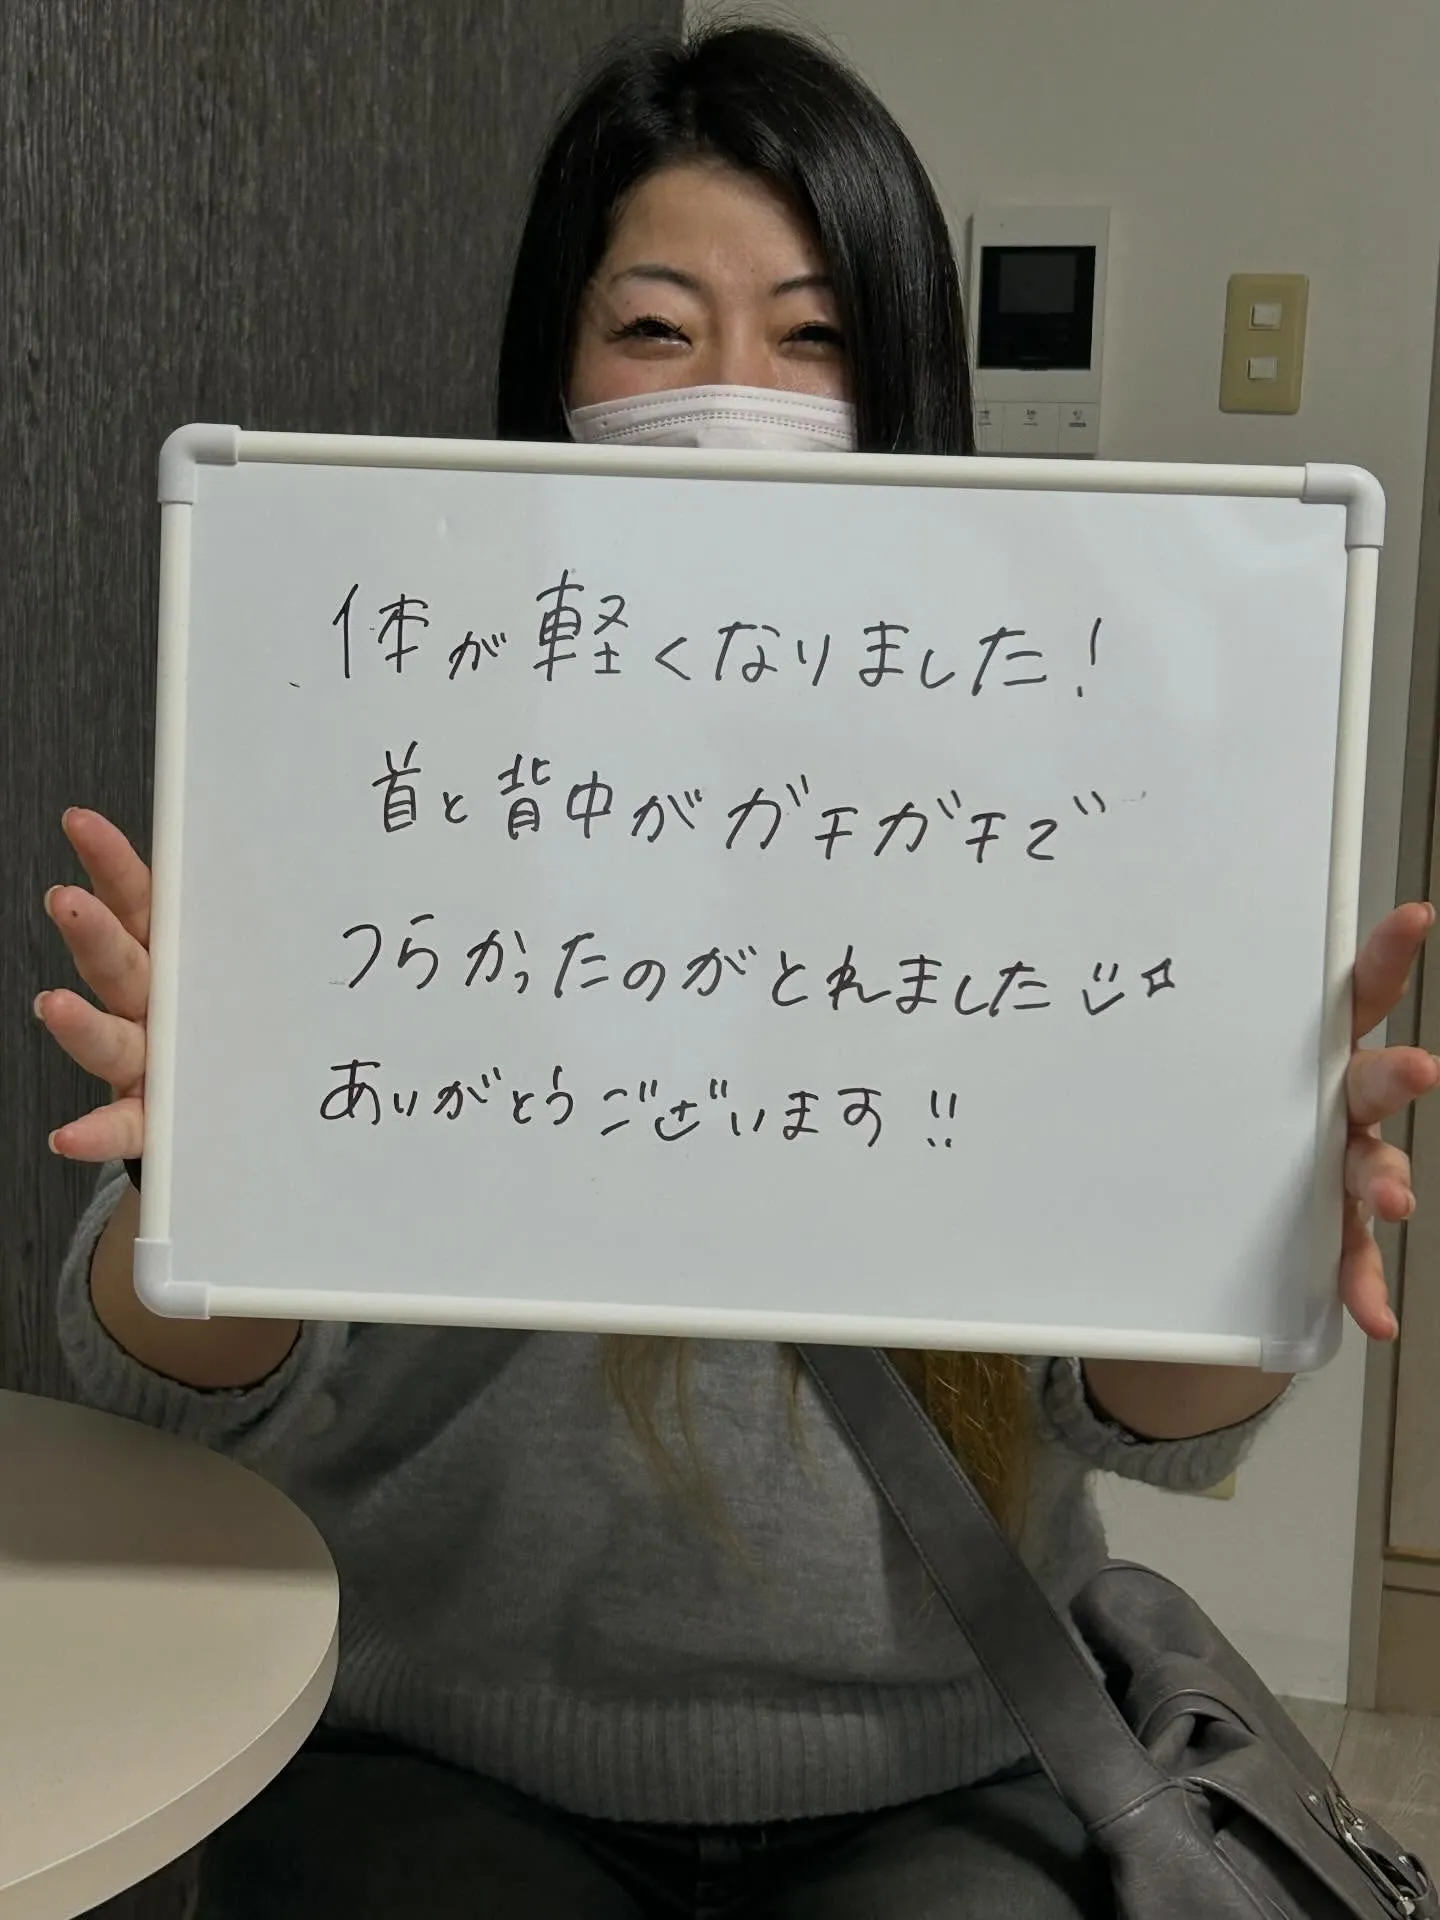 体が軽くなりました!
首と背中がガチガチで
つらかったのがとれました
ありがとうございます!!